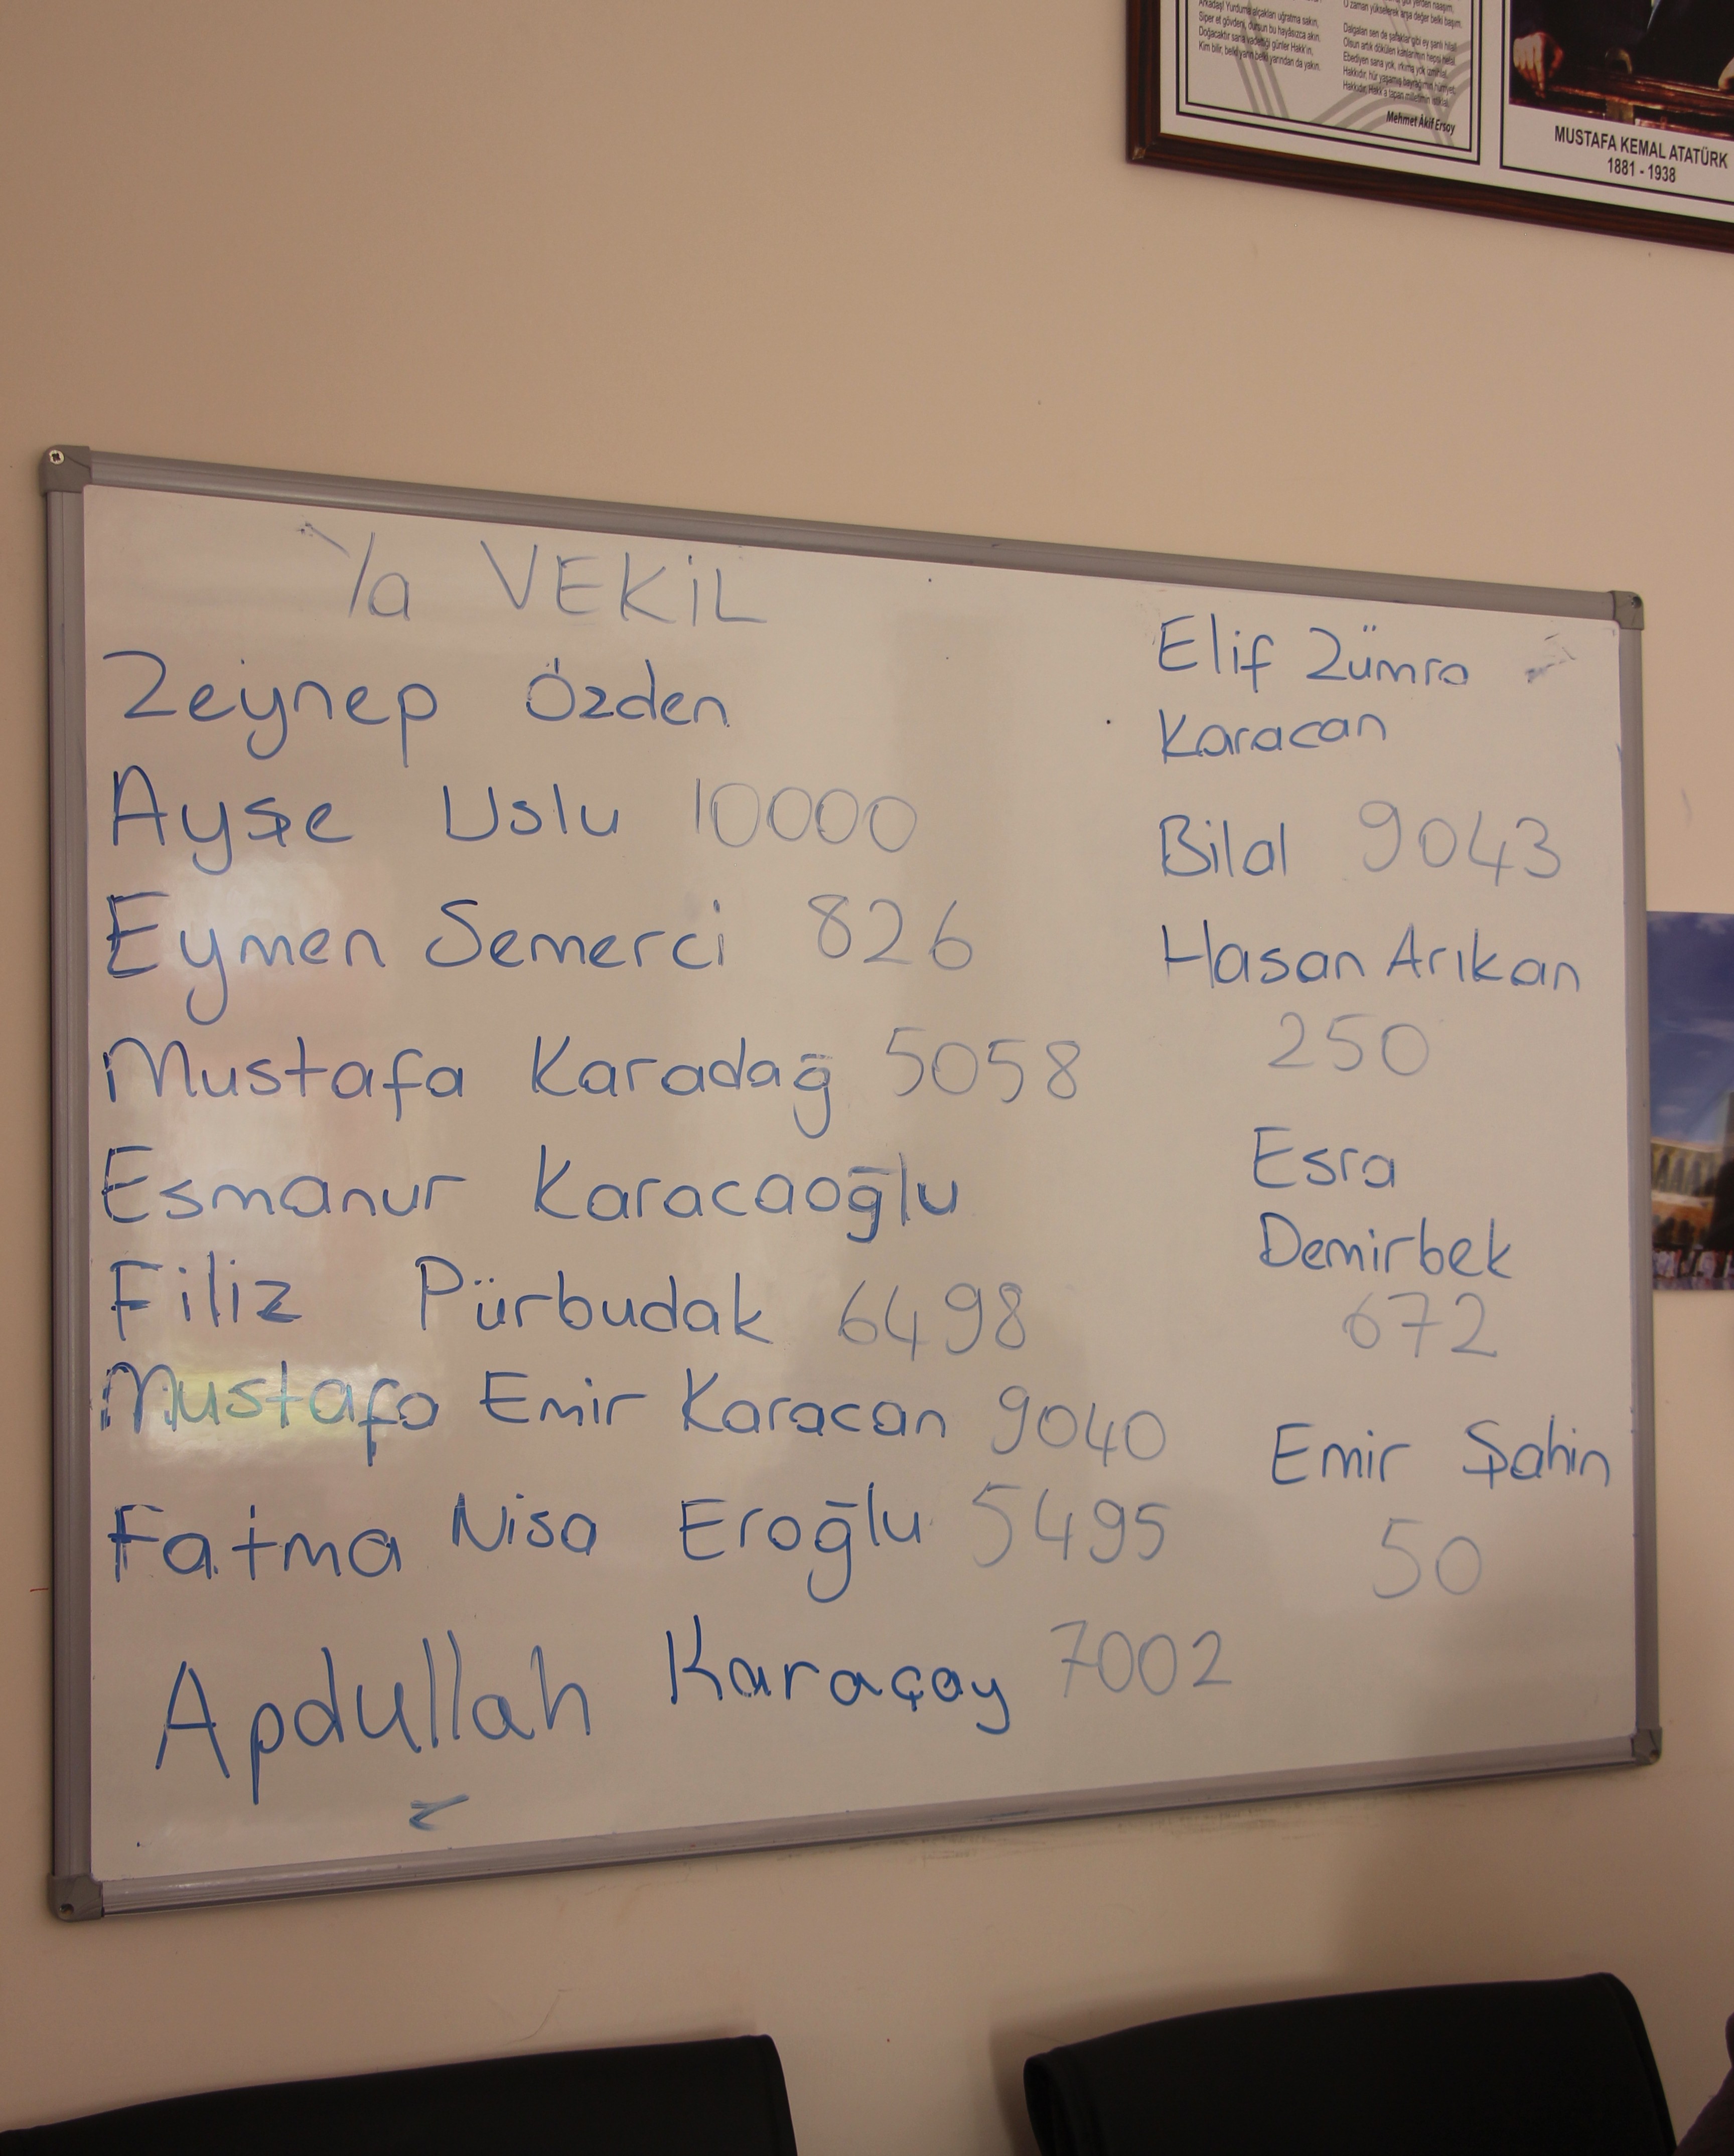 Arkadaş! Yurduma alçakları uğratma sakın,
Siper et gövdeni, dursun bu hayâsızca akın.
Doğacaktır sana vadettiği günler Hakk'ın,
Kim bilir, belki yarın belki yarından da yakın.
O zaman yükselerek arşa değer belki başım.
Dalgalan sen de şafaklar gibi ey şanlı hilal!
Olsun artık dökülen kanlarımın hepsi helal.
Ebediyen sana yok, ırkıma yok izmihlal.
Hakkıdır, hür yaşamış bayrağımın hürriyet;
Hakkıdır, Hakk'a tapan milletimin istiklal.
Mehmet Âkif Ersoy
MUSTAFA KEMAL ATATÜRK
1881 - 1938
Ya VEKİL
Zeynep Özden
Ayşe Uslu 10000
Eymen Semerci 826
Mustafa Karadağ 5058
Esmanur Karacaoğlu
Filiz Pürbudak 6498
Mustafa Emir Karacan 9040
Fatma Nisa Eroğlu 5495
Apdullah Karaçay 7002
Elif Zümra
Karacan
Bilal 9043
Hasan Arıkan
250
Esra
Demirbek
672
Emir Şahin
50